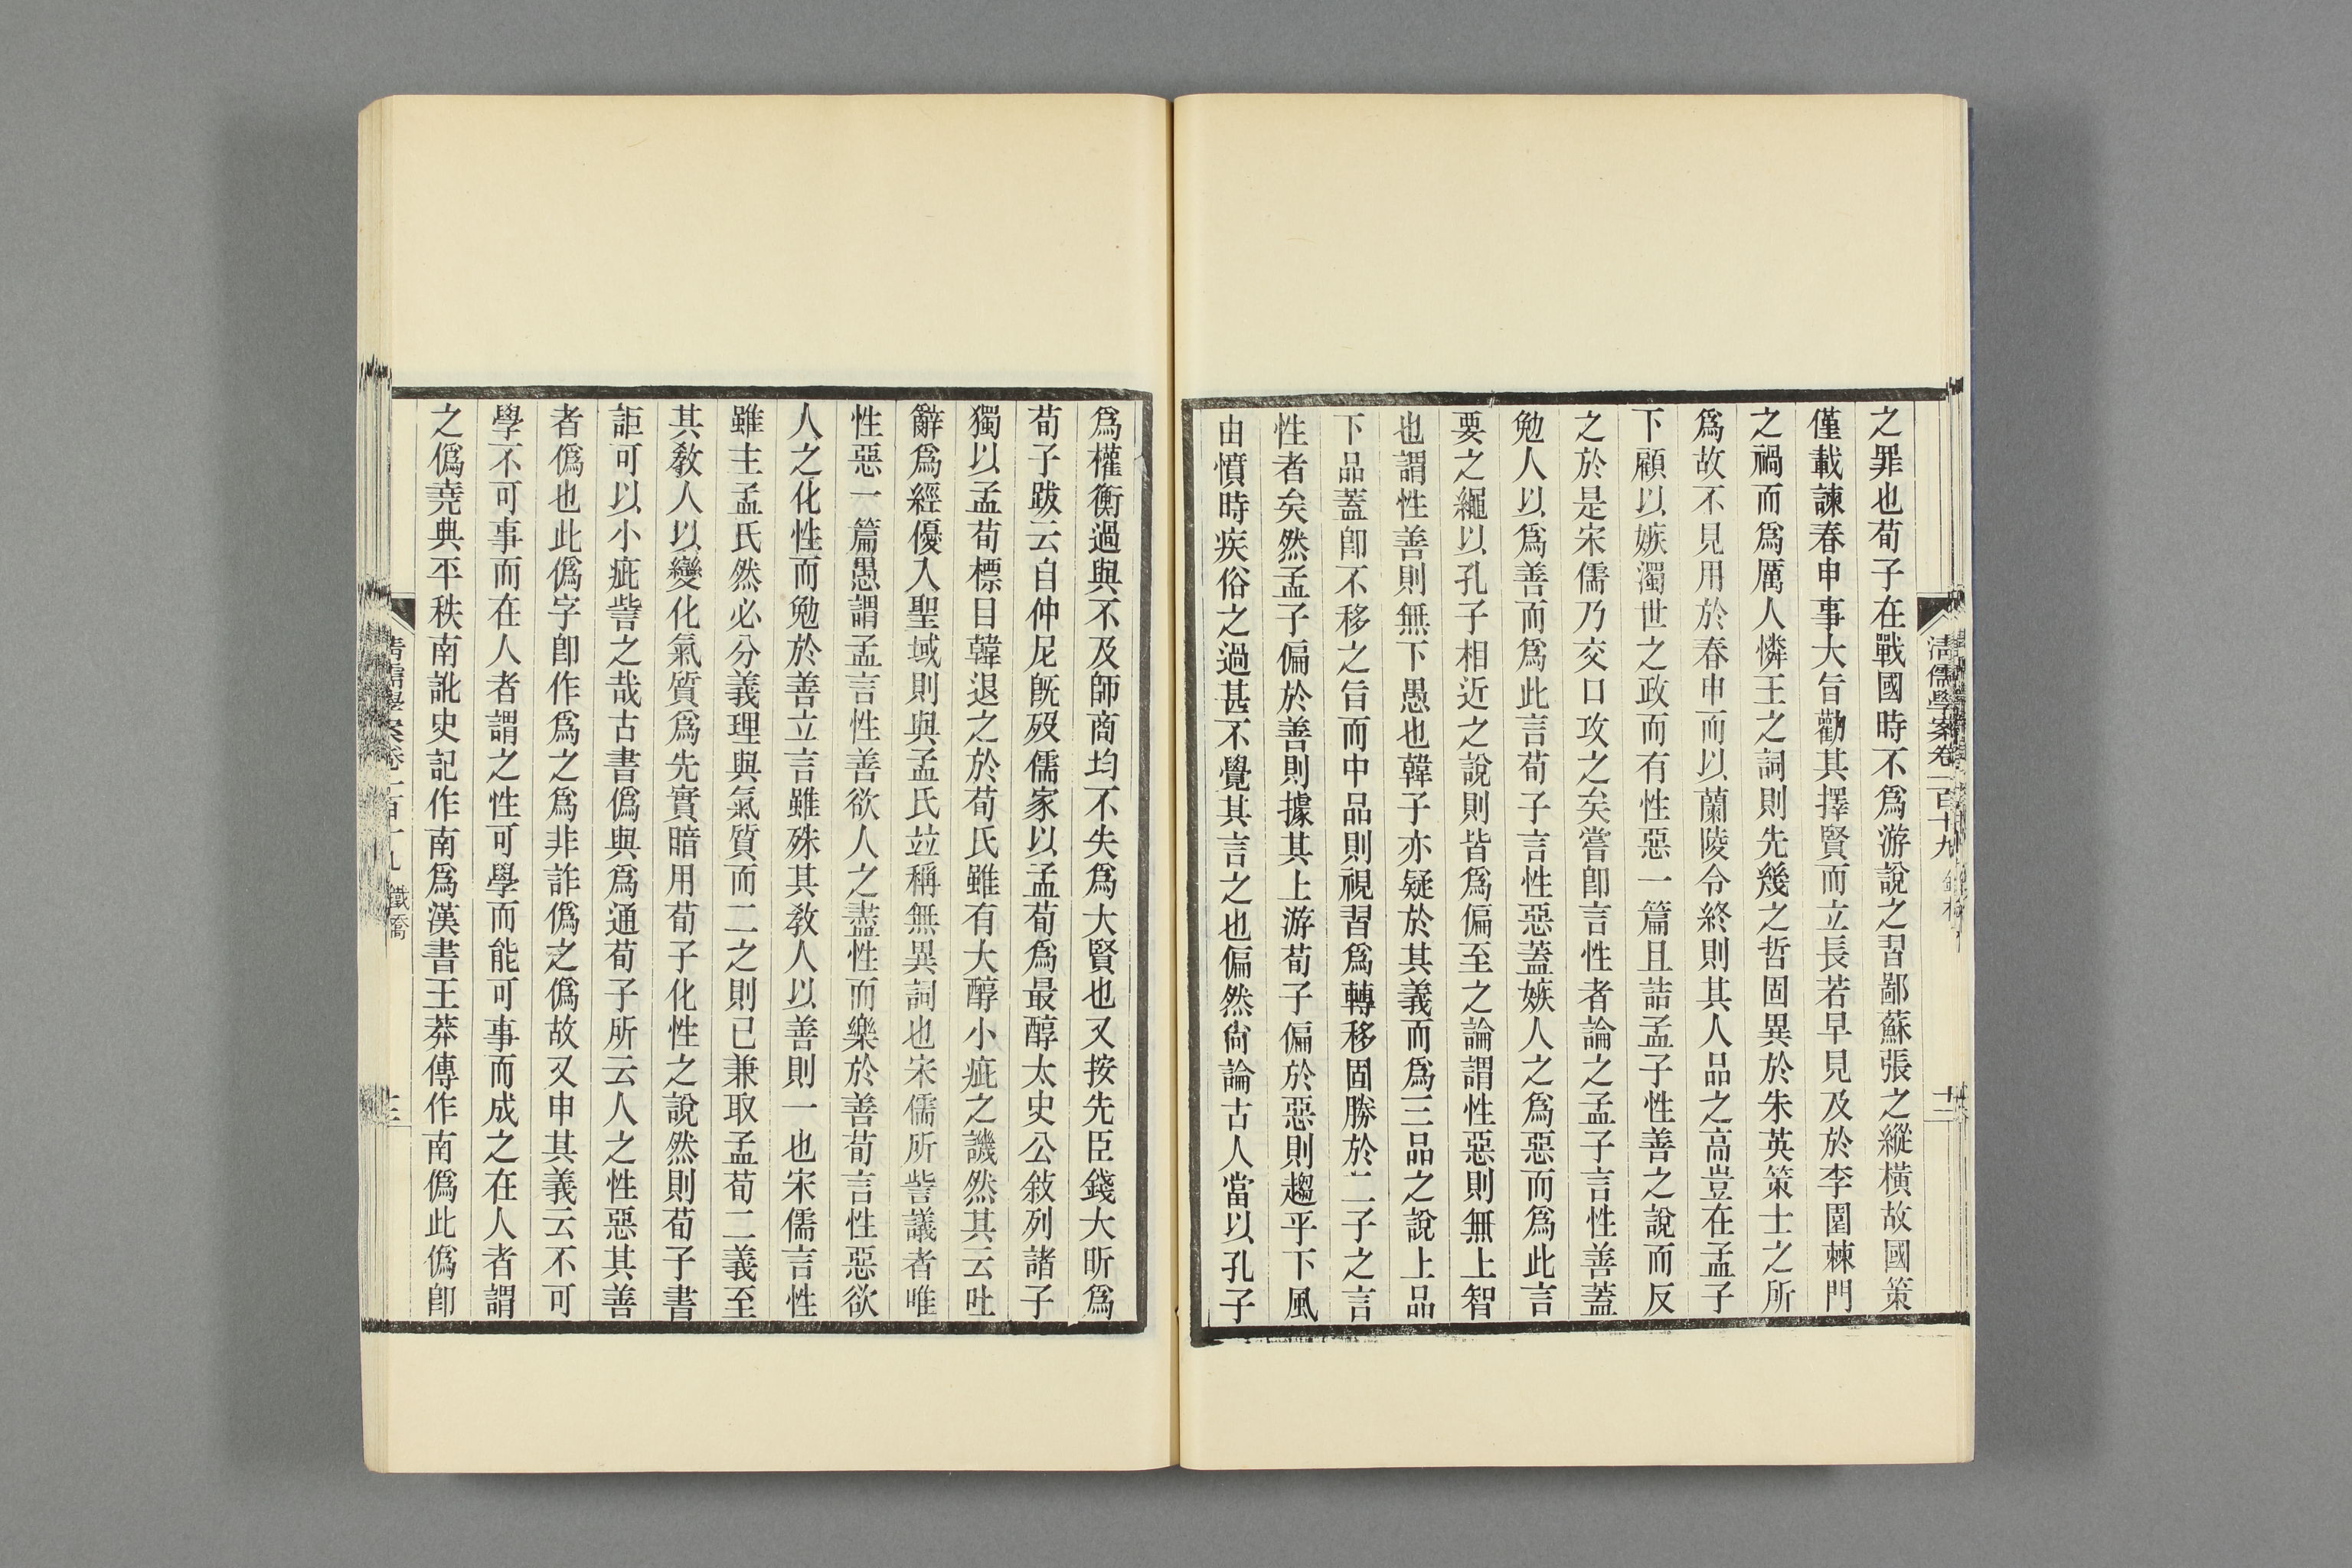 之罪也荀子在戰國時不爲游說之習鄙蘇張之縱橫故國策
僅載諫春申事大旨勸其擇賢而立長若早見及於李園棘門
之禍而爲厲人憐王之詞則先幾之哲固異於朱英策士之所
爲故不見用於春申而以蘭陵令終則其人品之高豈在孟子
下顧以嫉濁世之政而有性惡一篇且詰孟子性善之說而反
之於是宋儒乃交口攻之矣嘗卽言性者論之孟子言性善蓋
勉人以爲善而爲此言荀子言性惡蓋嫉人之爲惡而爲此言
要之繩以孔子相近之說則皆爲偏至之論謂性惡則無上智
也謂性善則無下愚也韓子亦疑於其義而爲三品之說上品
下品蓋卽不移之旨而中品則視習爲轉移固勝於二子之言
性者矣然孟子偏於善則據其上游荀子偏於惡則趨乎下風
由憤時疾俗之過甚不覺其言之也偏然尙論古人當以孔子
清儒學案卷一百十九
十二
爲權衡過與不及師商均不失爲大賢也又按先臣錢大昕爲
荀子跋云自仲尼旣歿儒家以孟荀爲最醇太史公敘列諸子
獨以孟荀標目韓退之於荀氏雖有大醇小疵之譏然其云吐
辭爲經優入聖域則與孟氏竝稱無異詞也宋儒所訾議者唯
性惡一篇愚謂孟言性善欲人之盡性而樂於善荀言性惡欲
人之化性而勉於善立言雖殊其敎人以善則一也宋儒言性
雖主孟氏然必分義理與氣質而二之則已兼取孟荀二義至
其敎人以變化氣質爲先實暗用荀子化性之說然則荀子書
詎可以小疵訾之哉古書僞與爲通荀子所云人之性惡其善
者僞也此僞字卽作爲之爲非詐僞之僞故又申其義云不可
學不可事而在人者謂之性可學而能可事而成之在人者謂
之僞堯典平秩南訛史記作南爲漢書王莽傳作南僞此僞卽
鐵橋